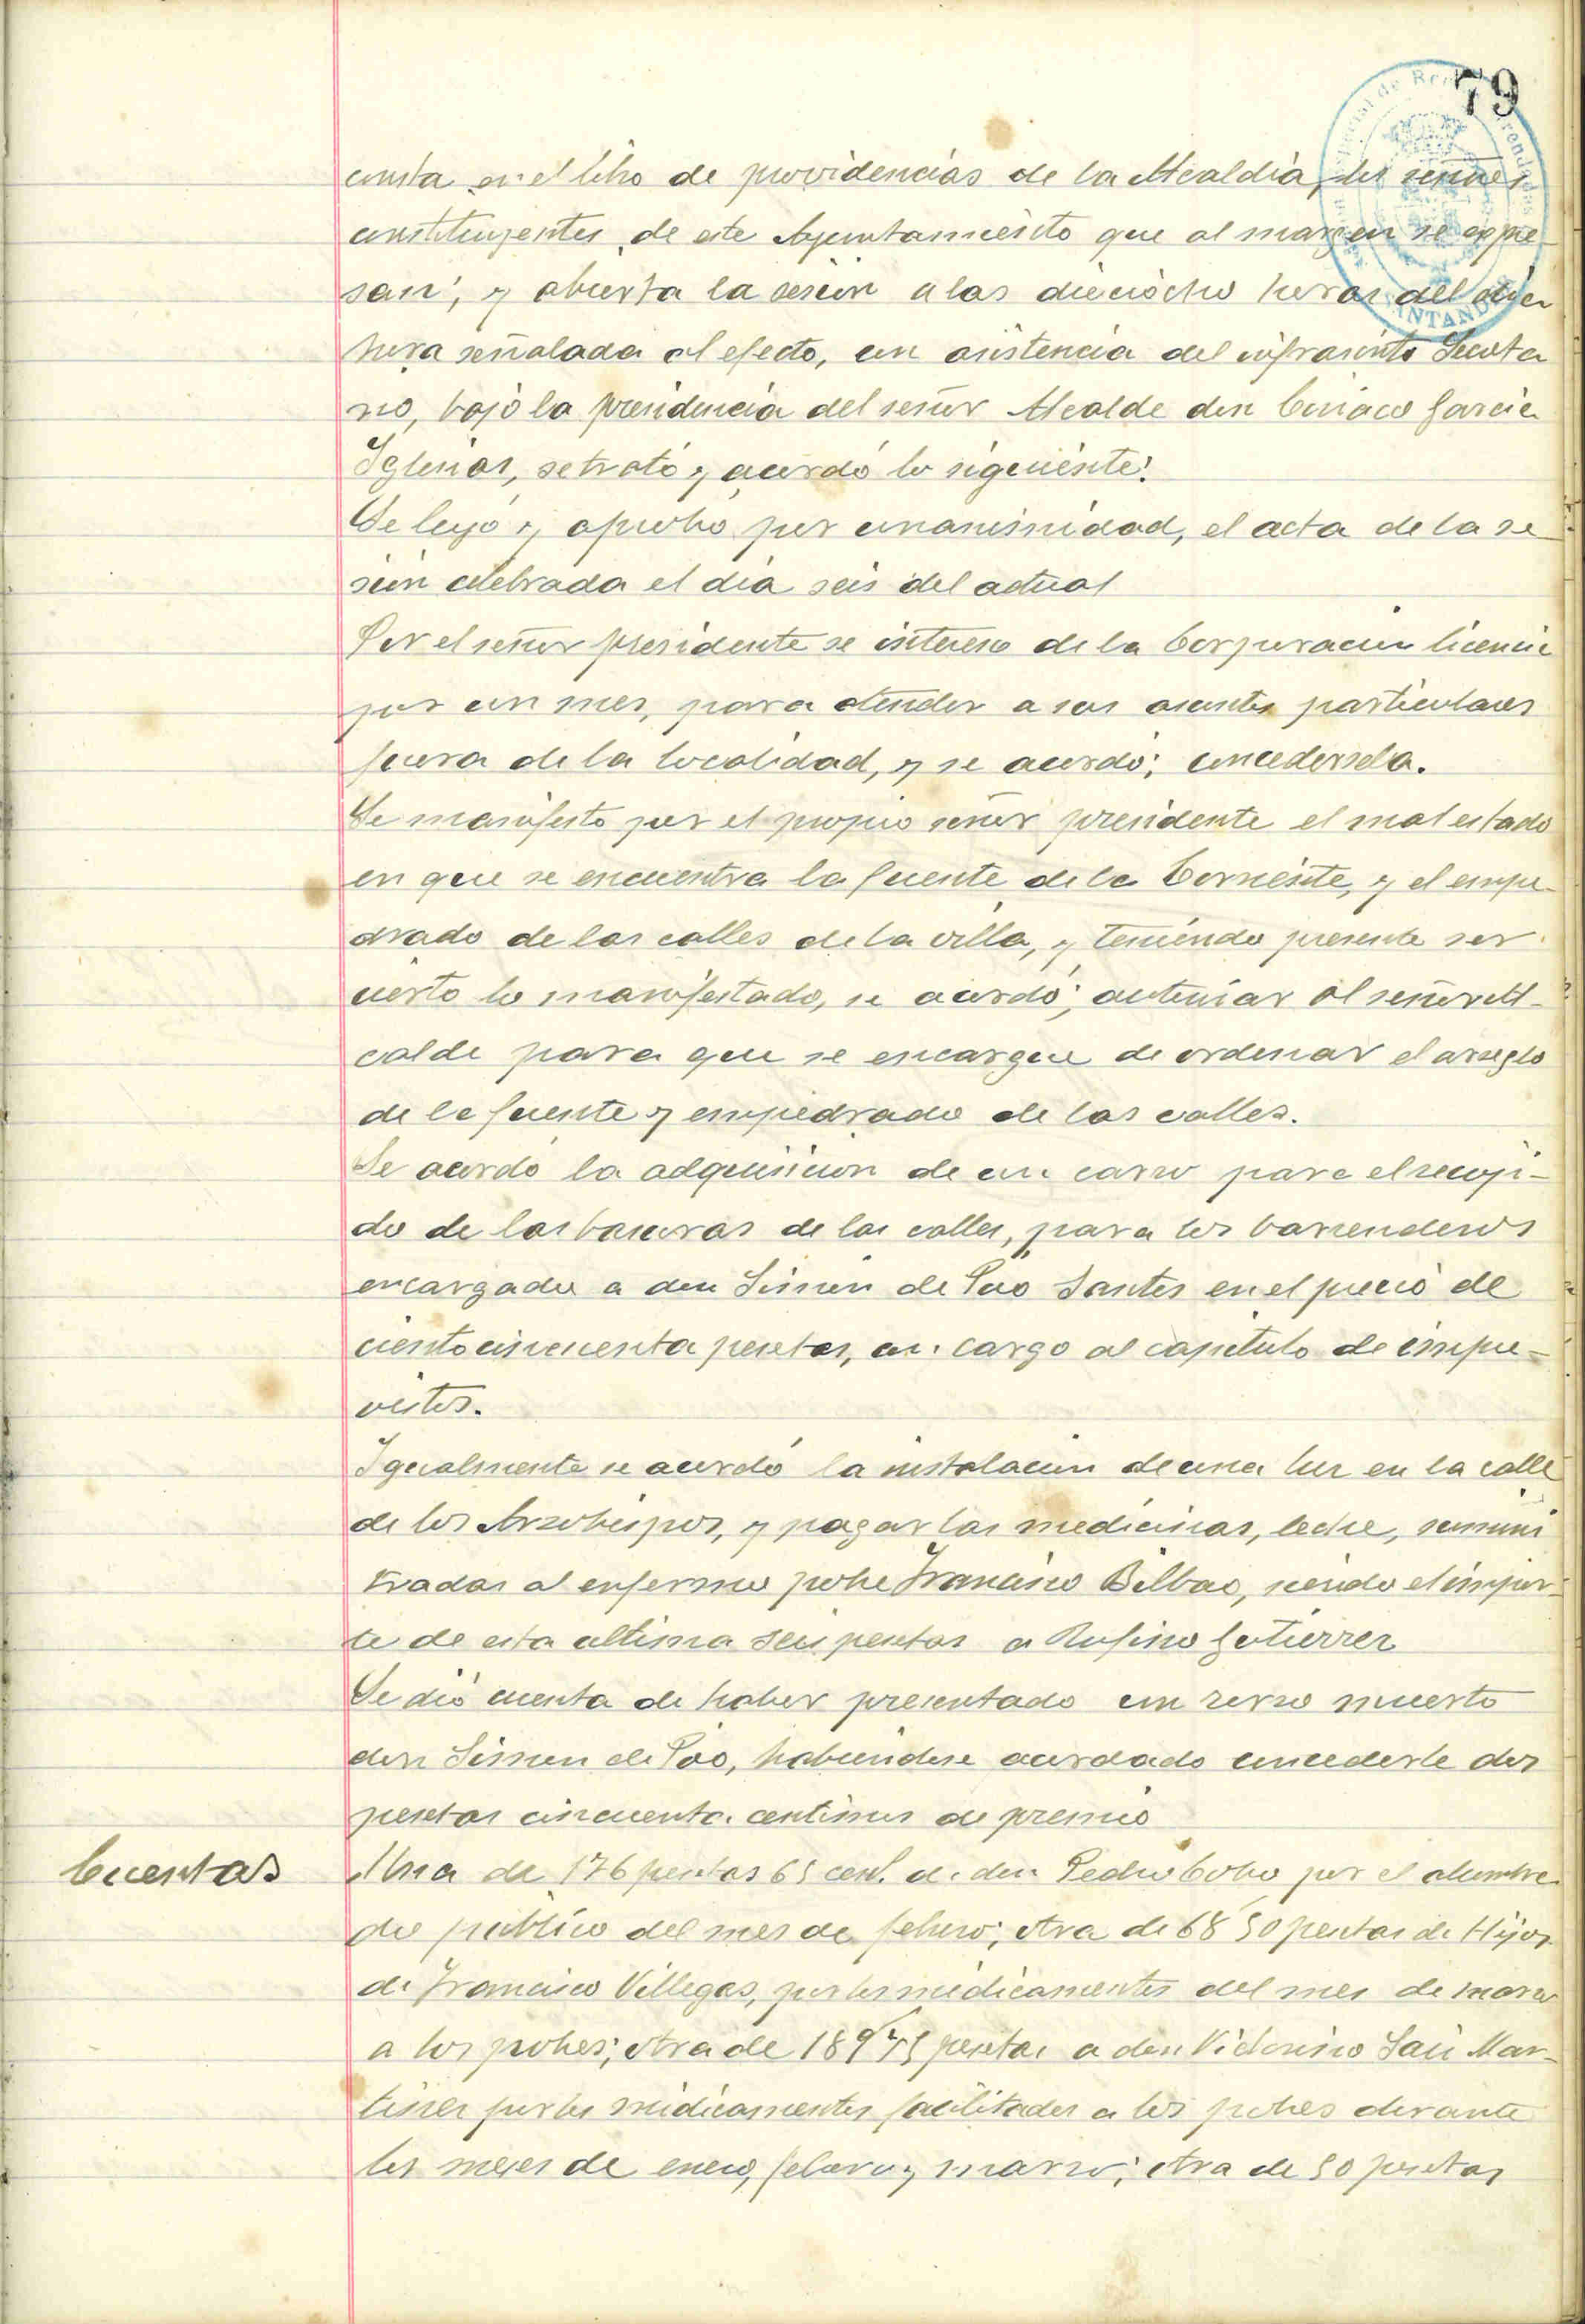 79
consta en el libro de providencias de la Alcaldia, los señores
constituyentes de este Ayuntamiento que al margen se expre-
san, y abierta la sesion a las dieciocho horas del dia
hora señalada al efecto, con asistencia del infrascrito Secreta
rio, bajo la presidencia del señor Alcalde don Ciriaco Garcia
Iglesias, se trató y acordó lo siguiente:
Se leyó y aprobó por unanimidad, el acta de la se-
sion celebrada el dia seis del actual
Por el señor presidente se intereso de la Corporacion licencia
por un mes, para atender a sus asuntos particulares
fuera de la localidad, y se acordó; concedersela.
Se manifesto por el propio señor presidente el mal estado
en que se encuentra la fuente de la Corriente, y el empe-
drado de las calles de la villa, y teniendo presente ser
cierto lo manifestado, se acordó; autorizar al señor Al-
calde para que se encargue de ordenar el arreglo
de la fuente y empiedrado de las calles.
Se acordó la adquisicion de un carro para el recoji-
do de las basuras de las calles, para los barrenderos
encargados a don Simon de Poo Santos en el precio de
ciento cincuenta pesetas, con cargo al capitulo de impre-
vistos.
Igualmente se acordó la instalacion de una luz en la calle
de los Arzobispos, y pagar las medicinas, leche, sumini
tradas al enfermo pobre Francisco Bilbao, siendo el impor-
te de esta ultima seis pesetas a Rufino Gutierrez
Se dió cuenta de haber presentado un zorro muerto
don Simon de Poo, habiendose acordado concederle dos
pesetas cincuenta centimos de premio
Cuentas
Una de 176 pesetas 65 cent. a don Pedro Cobo por el alumbra
do publico del mes de febrero; otra de 68 50 pesetas de Hijos
de Francisco Villegas, por los medicamentos del mes de marzo
a los pobres; otra de 189 75 pesetas a don Victorino San Mar-
tinez por los medicamentos facilitados a los pobres durante
los meses de enero, febrero y marzo; otra de 50 pesetas
SANTANDER